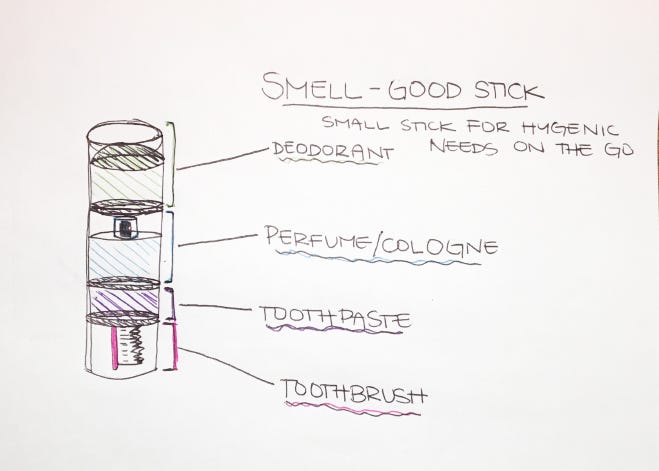 SMELL-GOOD STICK
SMALL STICK FOR HYGENIC
NEEDS ON THE GO
DEODORANT
PERFUME/COLOGNE
TOOTHPASTE
TOOTHBRUSH